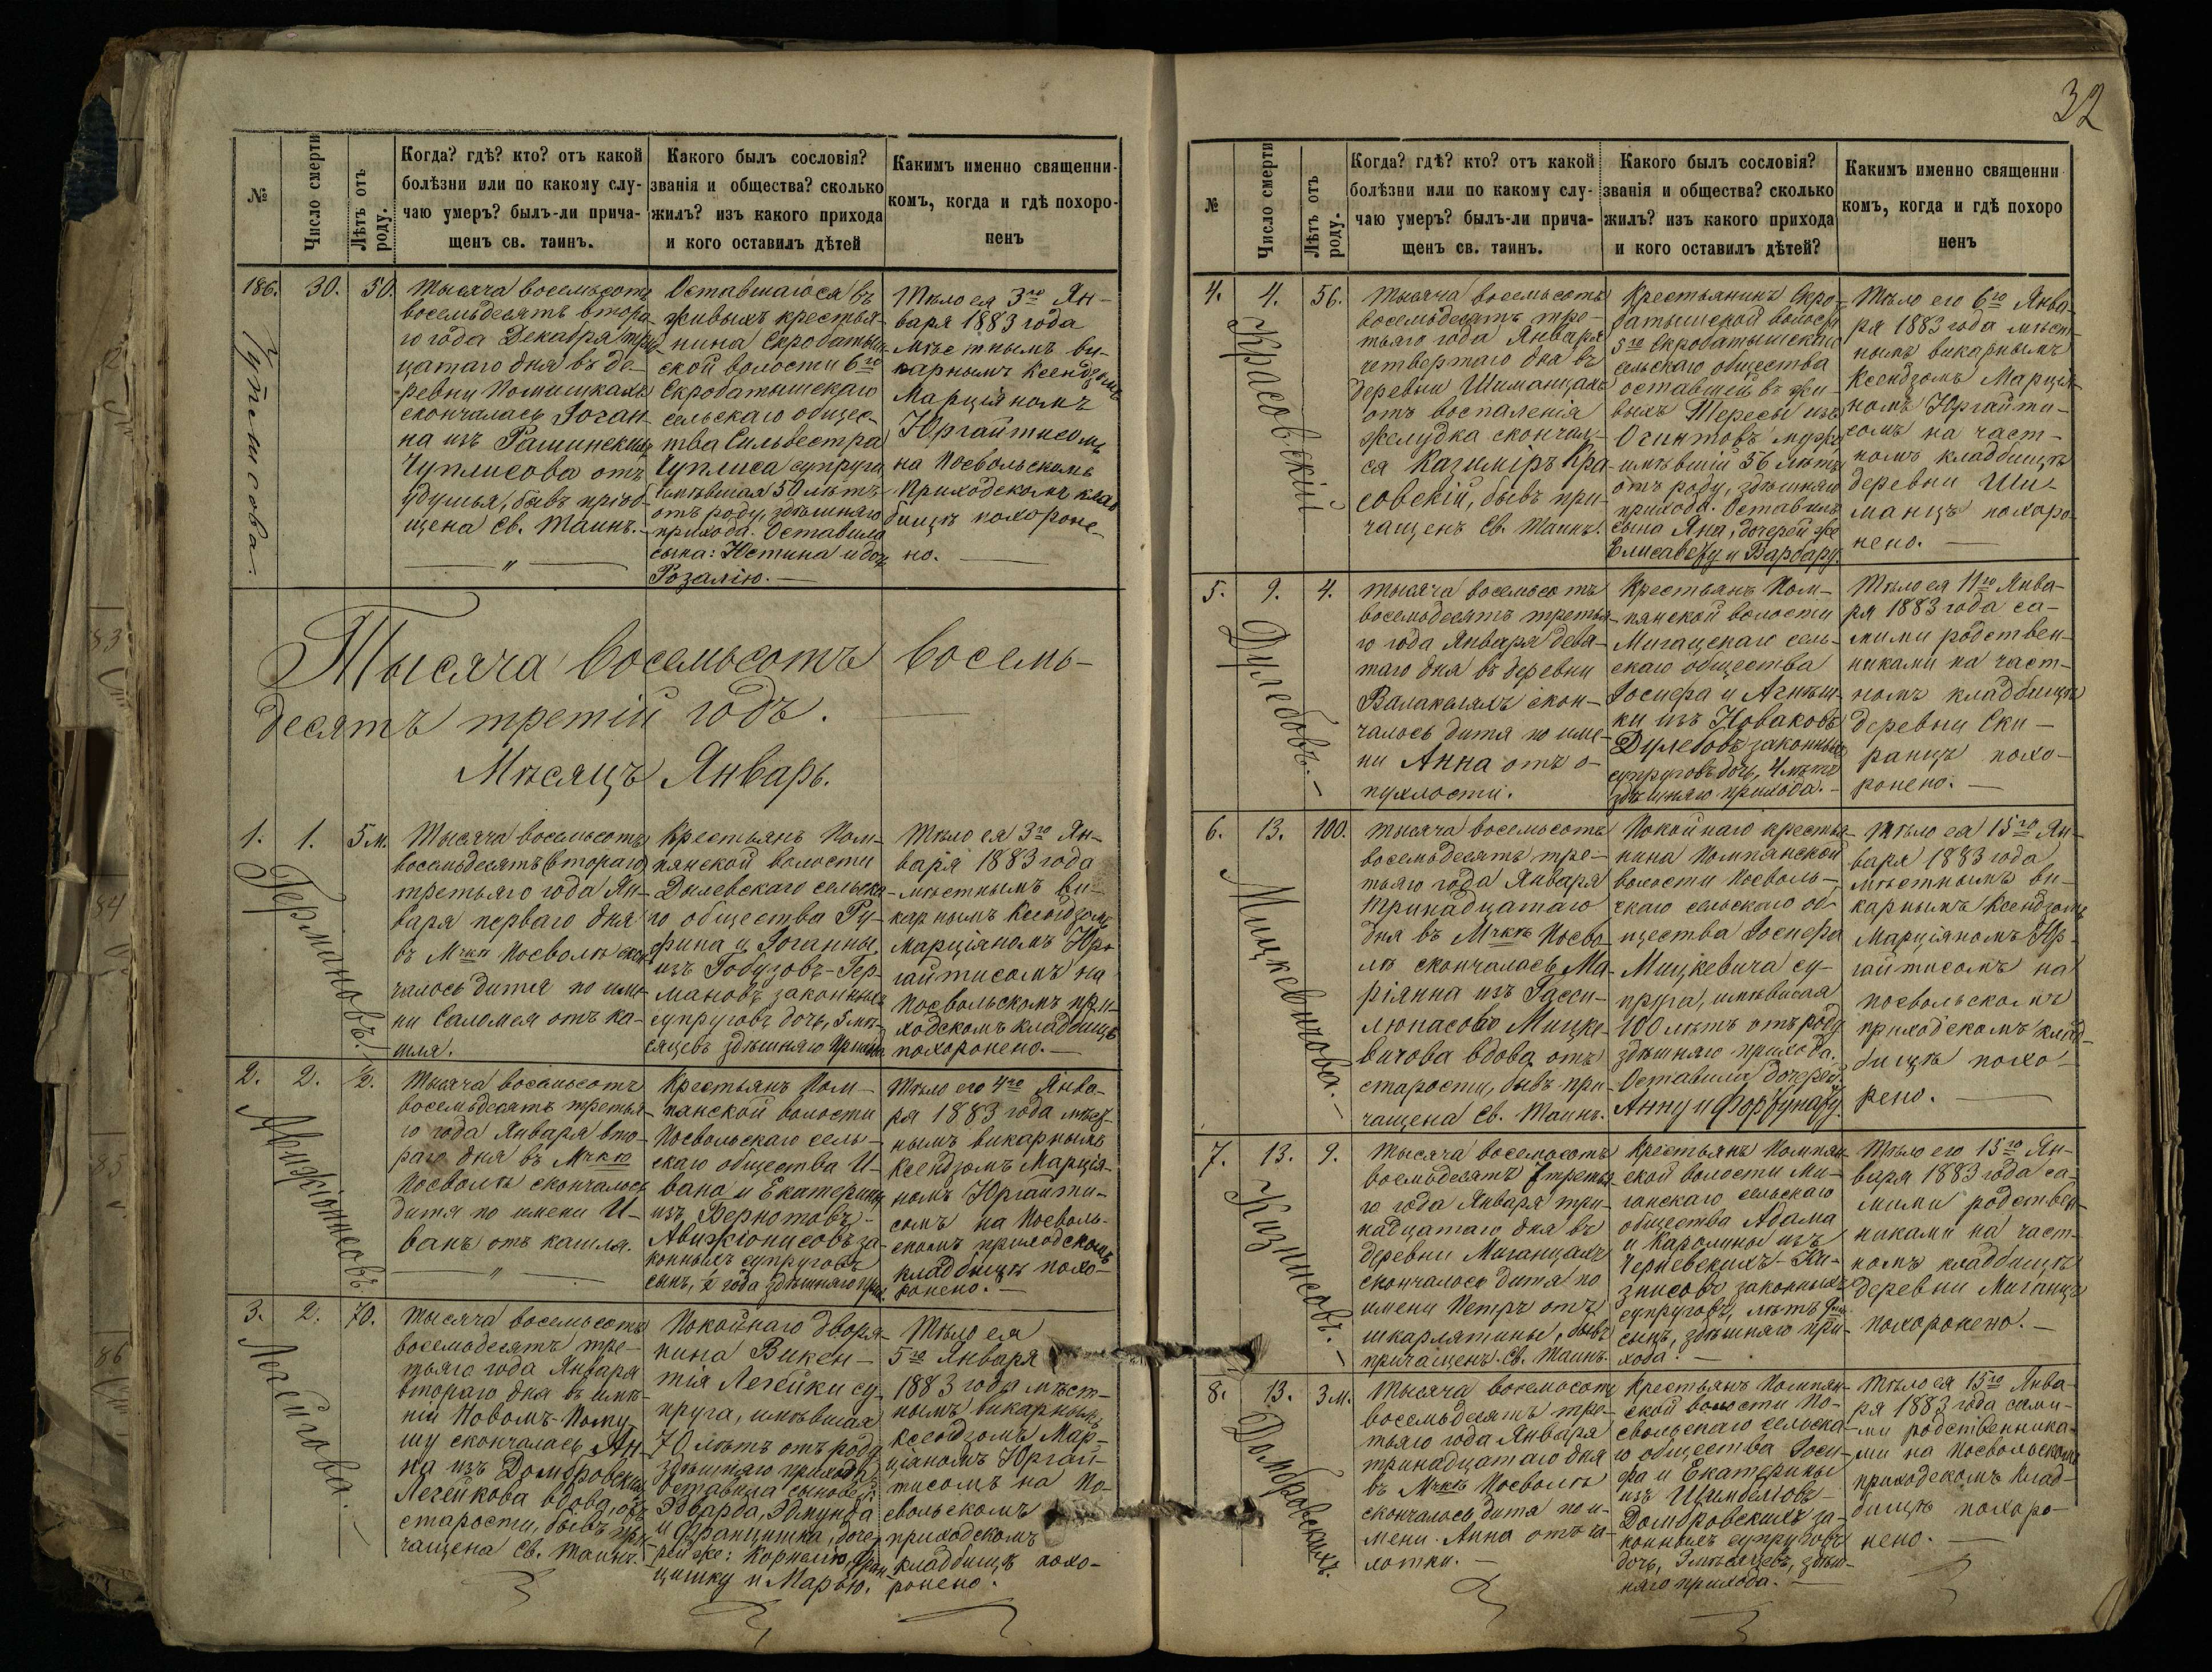 32
№
Число смерти
Лѣтъ отъ роду.
Когда? гдѣ? кто? отъ какой
болѣзни или по какому слу-
чаю умеръ? былъ-ли прича-
щенъ св. таинъ.
Какого былъ сословія?
званія и общества? сколько
жилъ? изъ какого прихода
и кого оставилъ дѣтей
Какимъ именно священни-
комъ, когда и гдѣ похоро-
ненъ
186.
30.
50.
Чуплисова.
Тысяча восемьсотъ
восемьдесятъ втора-
го года Декабря трид-
цатаго дня въ де-
ревни Помишкахъ
скончалась Іоган-
на изъ Рашинскихъ
Чуплисова отъ
удушья, бывъ пріоб-
щена Св. Таинъ.
Оставшагося въ
живыхъ крестья-
нина Скробатыш-
ской волости 6го
Скробатышскаго
сельскаго общес-
тва Сильвестра
Чуплиса супруга
имѣвшая 50 лѣтъ
отъ роду, здѣшняго
прихода. Оставила
сына: Юстина и дочь
Розалію.
Тѣло ея 3го Ян-
варя 1883 года
мѣстнымъ ви-
карнымъ Ксендзомъ
Марціяномъ
Юргайтисомъ
на Посвольскомъ
Приходскомъ клад-
бищѣ похороне-
но.
Тысяча восемьсотъ восемь-
десятъ третій годъ.
Мѣсяцъ Январь.
1.
1.
5 м.
Германовъ.
Тысяча восемьсотъ
восемьдесятъ (втораго)
третьяго года Ян-
варя перваго дня
въ Мчкѣ Посволѣ скон-
чалось дитя по име-
ни Саломея отъ ка-
шля.
Крестьянъ Пом-
пянской волости
Дилевскаго сельска-
го общества Ру-
фина и Іоганны
изъ Гобузовъ-Гер-
мановъ законныхъ
супруговъ дочь, 5 мѣ-
сяцевъ здѣшняго прихода
Тѣло ея 3го Ян-
варя 1883 года
мѣстнымъ ви-
карнымъ Ксендзомъ
Марціяномъ Юр-
гайтисомъ на
Посвольскомъ при-
ходскомъ кладбищѣ
похоронено.
2.
2.
½.
Авижіонисовъ.
Тысяча восемьсотъ
восемьдесятъ третья-
го года Января вто-
раго дня въ Мчкѣ
Посволѣ скончалось
дитя по имени И-
ванъ отъ кашля.
Крестьянъ Пом-
пянской волости
Посвольскаго сель-
скаго общества И-
вана и Екатерины
изъ Бернотовъ-
Авижіонисовъ за-
конныхъ супруговъ
сынъ, ½ года здѣшняго прих.
Тѣло его 4го Янва-
ря 1883 года мѣст-
нымъ викарнымъ
Ксендзомъ Марція-
номъ Юргайти-
сомъ на Посволь-
скомъ приходскомъ
кладбищѣ похо-
ронено.
3.
2.
70.
Легейкова.
Тысяча восемьсотъ
восемьдесятъ тре-
тьяго года Января
втораго дня въ имѣ-
ніи Новомъ-Пому-
шу скончалась Ан-
на изъ Домбровскихъ
Легейкова вдова, отъ
старости, бывъ при-
чащена Св. Таинъ.
Покойнаго дворя-
нина Викен-
тія Легейки су-
пруга, имѣвшая
70 лѣтъ отъ роду
здѣшняго прихода
Оставила сыновей:
Эдварда, Эдмунда
и Францишка, доче-
рей же: Корнелію, Фран-
цишку и Марью.
Тѣло ея
5го Января
1883 года мѣст-
нымъ викарнымъ
Ксендзомъ Мар-
ціаномъ Юргай-
тисомъ на По-
свольскомъ
приходскомъ
кладбищѣ похо-
ронено.
№
Число смерти
Лѣтъ отъ роду.
Когда? гдѣ? кто? отъ какой
болѣзни или по какому слу-
чаю умеръ? былъ-ли прича-
щенъ св. таинъ.
Какого былъ сословія?
званія и общества? сколько
жилъ? изъ какого прихода
и кого оставилъ дѣтей?
Какимъ именно священни
комъ, когда и гдѣ похоро
ненъ
4.
4.
56.
Красовскій
Тысяча восемьсотъ
восемьдесятъ тре-
тьяго года Января
четвертаго дня въ
деревни Шиманцахъ
отъ воспаленія
желудка скончал-
ся Казиміръ Кра-
совскій, бывъ при-
чащенъ Св. Таинъ.
Крестьянинъ Скро-
батышской волости
5го Скробатышскаго
сельскаго общества
оставшей въ жи-
выхъ Тересы изъ
Огинтовъ мужъ
имѣвшій 56 лѣтъ
отъ роду, здѣшняго
прихода. Оставилъ
сына Яна, дочерей же
Елисавету и Варвару.
Тѣло его 6го Янва-
ря 1883 года мѣст-
нымъ викарнымъ
Ксендзомъ Марція-
номъ Юргайти-
сомъ на част-
номъ кладбищѣ
деревни Ши-
манцъ похоро-
нено.
5.
9.
4.
Дулебовъ.
Тысяча восемьсотъ
восемьдесятъ третья-
го года Января девя-
таго дня въ деревни
Валакеляхъ скон-
чалось дитя по име-
ни Анна отъ о-
пухлости.
Крестьянъ Пом-
пянской волости
Мигацскаго сель-
скаго общества
Іосифа и Агнѣш-
ки изъ Новаковъ
Дулебовъ законныхъ
супруговъ дочь, 4 лѣтъ
здѣшняго прихода.
Тѣло ея 11го Янва-
ря 1883 года са-
мими родствен-
никами на част-
номъ кладбищѣ
деревни Ски-
ранцъ похо-
ронено.
6.
13.
100.
Мицкевичова.
Тысяча восемьсотъ
восемьдесятъ тре-
тьяго года Января
тринадцатаго
дня въ Мчкѣ Посво-
лѣ скончалась Ма-
ріянна изъ Гасси-
люнасовъ Мицке-
вичова вдова отъ
старости, бывъ при-
чащена Св. Таинъ.
Покойнаго крестья-
нина Помпянской
волости Посволь-
скаго сельскаго об-
щества Іосифа
Мицкевича су-
пруга, имѣвшая
100 лѣтъ отъ роду
здѣшняго прихода.
Оставила дочерей
Анну и Фортунату.
Тѣло ея 15го Ян-
варя 1883 года
мѣстнымъ ви-
карнымъ Ксендзомъ
Марціяномъ Юр-
гайтисомъ на
посвольскомъ
приходскомъ клад-
бищѣ похо-
рено.
7.
13.
9.
Кизнисовъ.
Тысяча восемьсотъ
восемьдесятъ третья-
го года Января три-
надцатаго дня въ
деревни Миганцахъ
скончалось дитя по
имени Петръ отъ
шкарлятины, бывъ
причащенъ Св. Таинъ.
Крестьянъ Помпян-
ской волости Ми-
ганскаго сельскаго
общества Адама
и Каролины изъ
Черневскихъ-Ки-
знисовъ законныхъ
супруговъ, лѣтъ 9ти
сынъ, здѣшняго при-
хода.
Тѣло его 15го Ян-
варя 1883 года са-
мими родствен-
никами на част-
номъ кладбищѣ
деревни Миганцъ
похоронено.
8.
13.
3 м.
Домбровскихъ.
Тысяча восемьсотъ
восемьдесятъ тре-
тьяго года Января
тринадцатаго дня
въ Мчкѣ Посволѣ
скончалось дитя по и-
мени Анна отъ ча-
хотки.
Крестьянъ Помпян-
ской волости По-
свольскаго сельска-
го общества Іоси-
фа и Екатерины
изъ Цимбелювъ-
Домбровскихъ за-
конныхъ супруговъ
дочь, 3 мѣсяцевъ, здѣш-
няго прихода.
Тѣло ея 15го Янва-
ря 1883 года сами-
ми родственника-
ми на Посвольскомъ
приходскомъ клад-
бищѣ похоро-
нено.